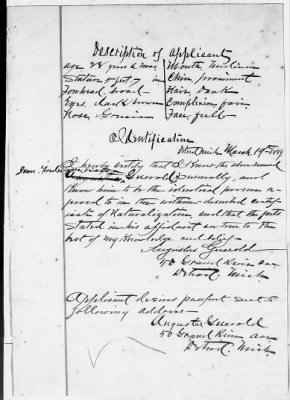 Description of applicant
age 28 years 6 mos
Mouth medium
Stature 5 feet 7 in
Chin, prominent
Forehead, broad
Hair, dark
Eyes, dark brown
Complexion, fair
Nose, Grecian
Face, full
Identification
Detroit Mich March 19th 1889
I hereby certify that I know the above named
Guerold personally, and
know him to be the identical person re-
ferred to in the within described certifi-
cate of Naturalization, and that the facts
stated in his affidavit are true to the
best of my knowledge and belief.
Augustus Guerold
50 Grand River ave
Detroit. Mich
Applicant desires passport sent to
following address
Augustus Guerold
50 Grand River ave
Detroit. Mich